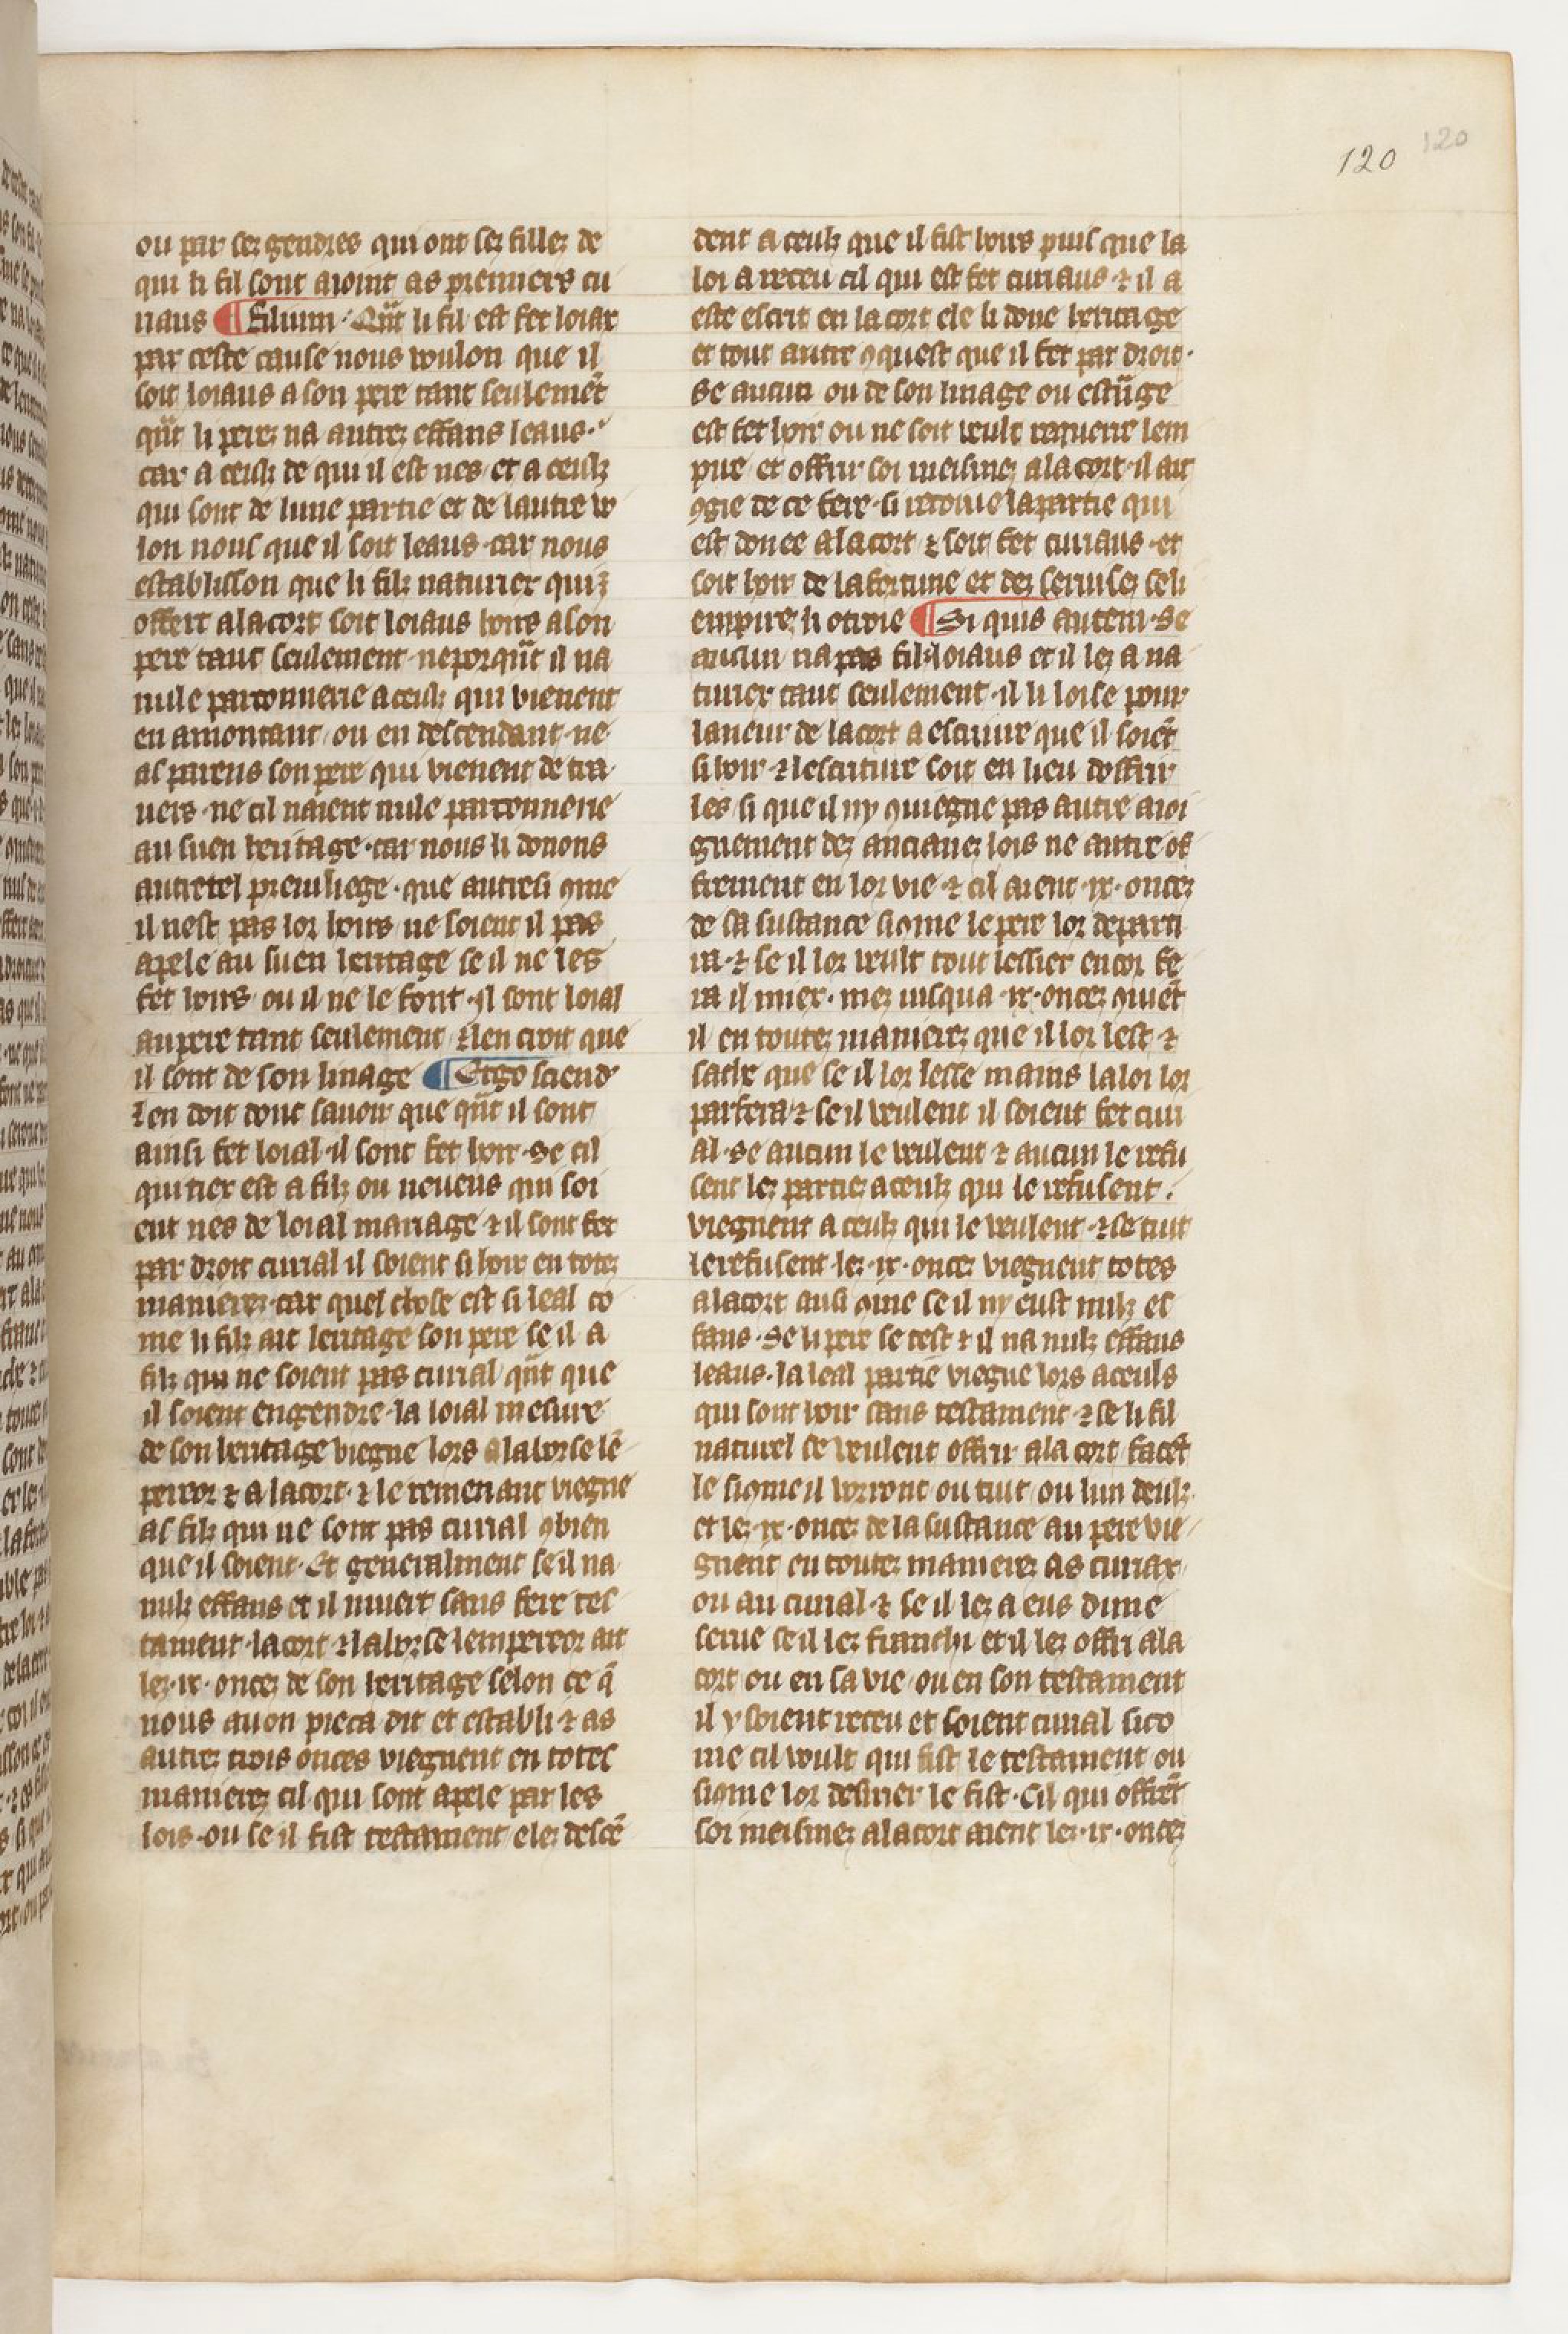 120 120
ou par sez gendres qui ont sez fillez de
qui li fil sont aioint as premiers cu
riaus ¶ Filium. Qu̅t li fil est fet loiax
par ceste cause nous voulon que il
soit loiaus a son pere tant seulemēt
qu̅t li perez na autrez effans leaus.
car a ceulz de qui il est nes et a ceulz
qui sont de lune partie et de lautre vo
lon nous que il soit leaus. car nous
establisson que li filz naturier qui ꝫ
offert a la cort soit loiaus hoirs a son
pere tant seulement. neporqu̅t il na
nule parconnerie a ceulz qui vienent
en amontant ou en descendant. ne
as parens son pere qui vienent de tra
uers. ne cil naient nule parconnerie
au suen heritage. car nous li donons
autretel preuiliege. que autresi ꝯme
il nest pas lor hoirs ne soient il pas
apele au suen heritage se il ne les
fet hoirs ou il ne le font. Il sont loial
au pere tant seulement ⁊ len croit que
il sont de son linage ¶ Ergo sciend
⁊ en doit donc sauoir que qu̅t il sont
ainsi fet loial. il sont fet hoir. Se cil
qui tier est a filz ou neueus qui soi
ent nes de loial mariage ⁊ il sont fet
par droit curial il soient si hoir en totez
manierez. car quel chose est si leal co
me li filz ait leritage son pere se il a
filz qui ne soient pas curial qu̅t que
il soient engendre. la loial mesure
de son heritage viegne lors a la borse lē
pereor ⁊ a la cort. ⁊ le remenant viegne
as filz qui ne sont pas curial ꝯbien
que il soient. Et generalment se il na
nulz effans et il muert sans fere tes
tament. la cort ⁊ la borse lempereor ait
lez .ix. oncez de son heritage selon ce q̄
nous auon pieca dit et establi ⁊ as
autrez trois onces viegnent en totes
manierez cil qui sont apele par les
lois. ou se il fist testament elez descē
dent a ceulz que il fist hoirs puis que la
loi a receu cil qui est fet curiaus ⁊ il a
este escrit en la cort ele li done heritage
et tout autre ꝯquest que il fet par droit.
Se aucun ou de son linage ou estūge
est fet hoir ou ne soit veult requerre lem
pire et offrir soi meismez a la cort. il ait
ꝯgie de ce fere. si retorne la partie qui
est donee a la cort ⁊ soit fet curiaus. et
soit hoir de la fortune et dez seruisez se li
empirez li otroie ¶ Si quis autem. Se
aucun na pas filz loiaus et il lez a na
turier tant seulement. il li loise pour
laneur de la cort a escriure que il soiēt
si hoir ⁊ lescriture soit en lieu doffrir
les si que il ny ꝯuiēgne pas autre aioi
gnement dez ancianez lois ne autre of
frement en lor vie ⁊ cil aient .ix. oncez
de sa sustance si ꝯme le pere lor departi
ra. ⁊ se il lor veult tout lessier encor fe
ra il miex. mez iusqua .ix. oncez ꝯuiēt
il en toutez manierez que il lor lest ⁊
sache que se il lor lesse mains la loi lor
parfera ⁊ se il veulent il soient fet curi
al. Se aucun le veulent ⁊ aucun le refu
sent lez partiez a ceulz qui le refusent.
viegnent a ceulz qui le veulent. ⁊ se tuit
le refusent lez .ix. oncez viegnent totes
a la cort ausi ꝯme se il ny eust nulz ef
fans. Se li pere se test ⁊ il na nulz effans
leaus. la leal partie viegne lors a ceuls
qui sont hoir sans testament ⁊ se li fil
naturel se veulent offrir a la cort facēt
le si ꝯme il vorront ou tuit ou lun deulz.
et lez .ix. oncez de la sustance au pere vie
gnent en toutez manierez as curiax
ou au curial. ⁊ se il lez a eus dune
serue se il lez franchi et il lez offri a la
cort ou en sa vie ou en son testament
il y soient receu et soient curial si co
me cil voult qui fist le testament ou
si ꝯme lor desirier le fist. Cil qui offrēt
soi meismez a la cort aient lez .ix. oncez